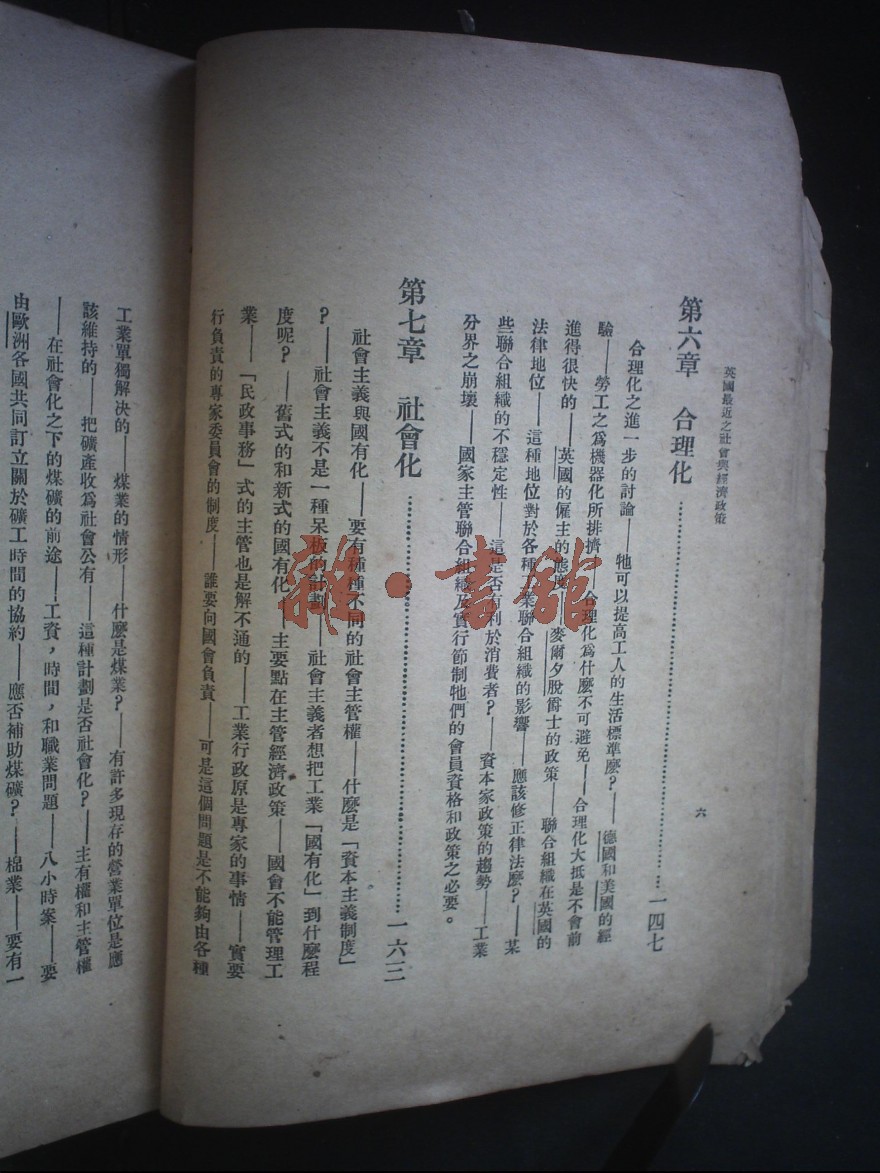 英國最近之社會與經濟政策
六
第六章 合理化…………一四七
合理化之進一步的討論——牠可以提高工人的生活標準麽?——德國和美國的經
驗——勞工之爲機器化所排擠——合理化爲什麽不可避免——合理化大抵是不會前
進得很快的——英國的僱主的態度——麥爾夕脫爵士的政策——聯合組織在英國的
法律地位——這種地位對於各種工業聯合組織的影響——應該修正律法麽?——某
些聯合組織的不穩定性——這是否有利於消費者?——資本家政策的趨勢——工業
分界之崩壞——國家主管聯合組織及實行節制牠們的會員資格和政策之必要。
第七章 社會化…………一六三
社會主義與國有化——要有種種不同的社會主管權——什麽是「資本主義制度」
?——社會主義不是一種呆板的計劃——社會主義者想把工業「國有化」到什麽程
度呢?——舊式的和新式的國有化——主要點在主管經濟政策——國會不能管理工
業——「民政事務」式的主管也是解不通的——工業行政原是專家的事情——實要
行負責的專家委員會的制度——誰要向國會負責——可是這個問題是不能夠由各種
工業單獨解決的——煤業的情形——什麽是煤業?——有許多現存的營業單位是應
該維持的——把礦產收爲社會公有——這種計劃是否社會化?——主有權和主管權
——在社會化之下的煤礦的前途——工資,時間,和職業問題——八小時案——要
由歐洲各國共同訂立關於礦工時間的協約——應否補助煤礦?——棉業——要有一
雜·書館